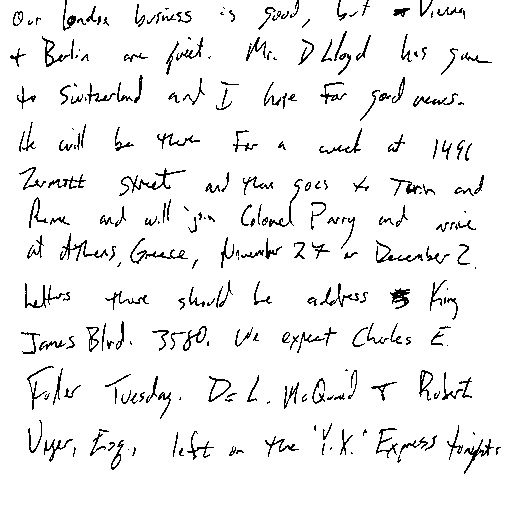 Our london business is good, but Vienna
+ Berlin are quiet. Mr. D Lloyd has gone
to Switzerland and I hope for good news.
He will be there for a week at 1496
Zermott street and then goes to Turin and
Rome and will join Colonel Parry and arrive
at Athens, Greece, November 27 or December 2.
Letters there should be address King
James Blvd. 3580. We expect Charles E.
Fuller Tuesday. Dr L. McQuaid & Robert
Unger, Esq., left on the "Y.X." Express tonight.